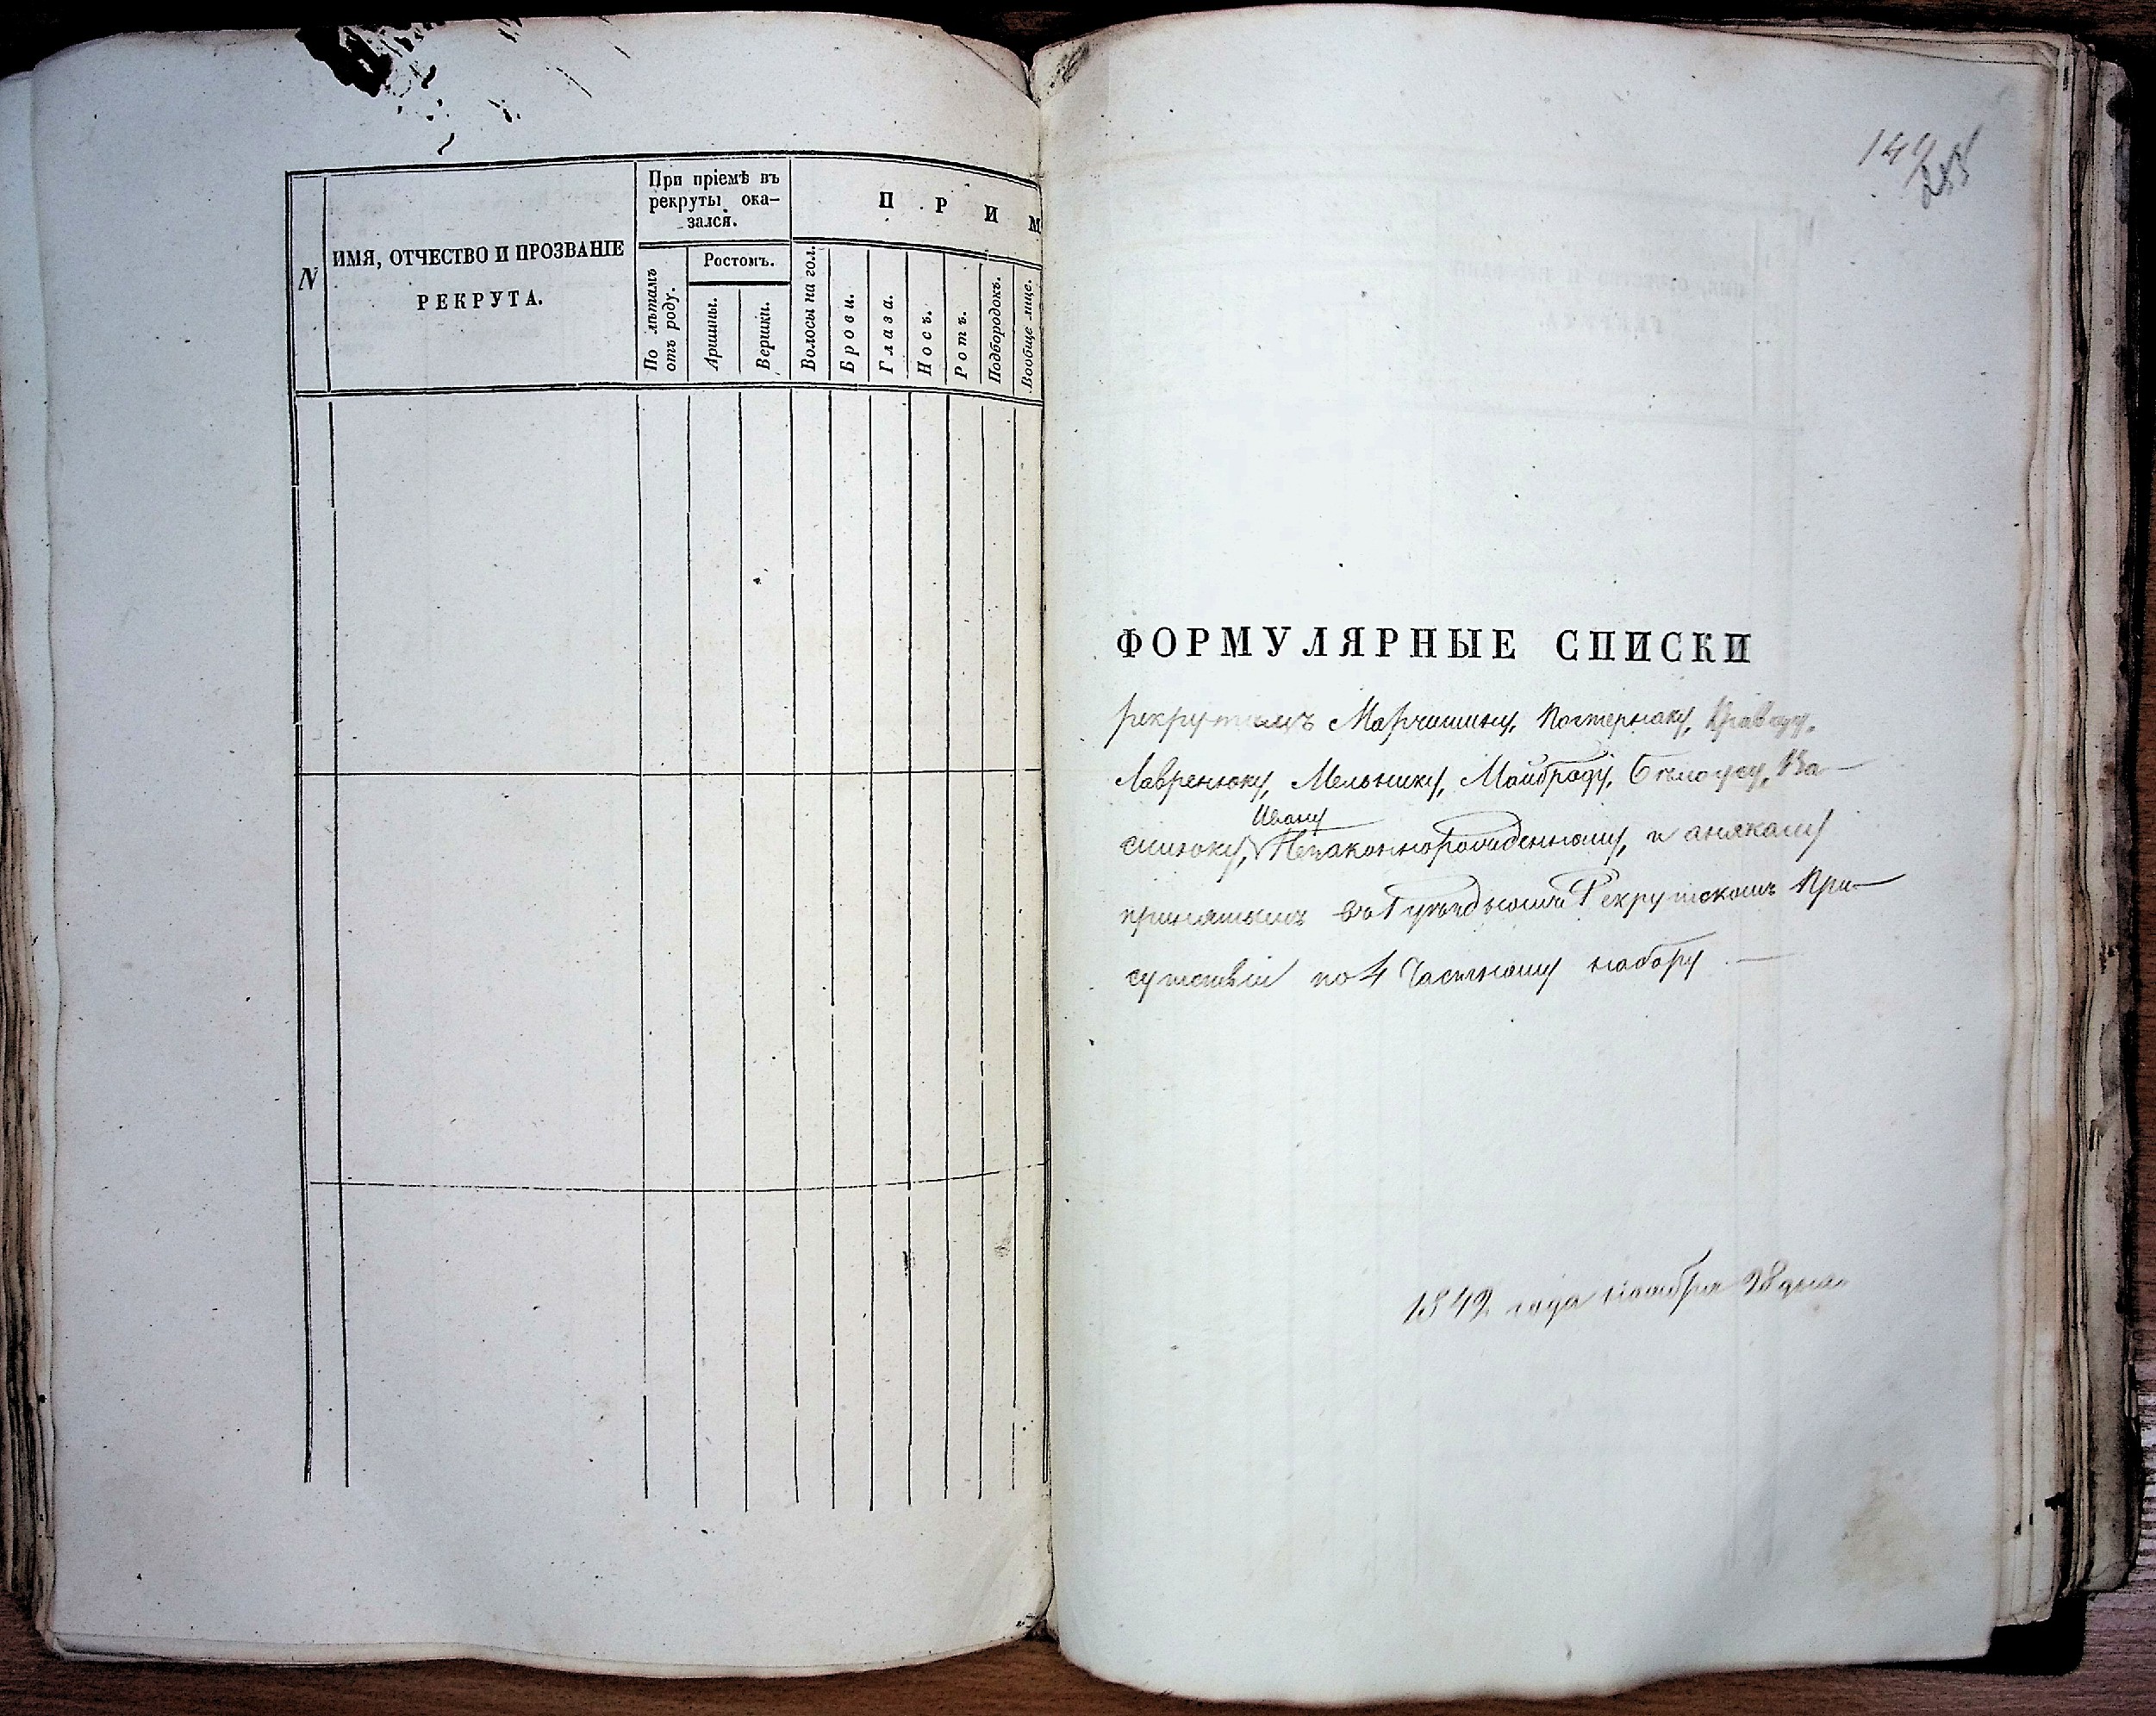 N
ИМЯ, ОТЧЕСТВО И ПРОЗВАНІЕ
РЕКРУТА.
При пріемѣ въ
рекруты ока-
зался.
По лѣтамъ
отъ роду.
Ростомъ.
Аршины.
Вершки.
П Р И М
Волосы на гол.
Брови.
Глаза.
Носъ.
Ротъ.
Подбородокъ.
Вообще лице.
ФОРМУЛЯРНЫЕ СПИСКИ
рекрутамъ Пастернаку, Кравцу,
Лавренюку, Мельнику, Майброду, Бѣлоусу, Ва-
Ивану
силюку, Незаконнорожденному, и
принятымъ въ Рекрутскомъ При-
сутствіи по 4 Частному набору
1842 года ноября 28 дня